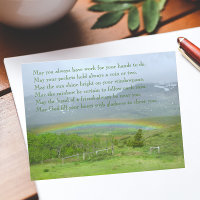 May you always have work for your hands to do.
May your pockets hold always a coin or two.
May the sun shine bright on your windowpane.
May the rainbow be certain to follow each rain.
May the hand of a friend always be near you.
May God fill your heart with gladness to cheer you.